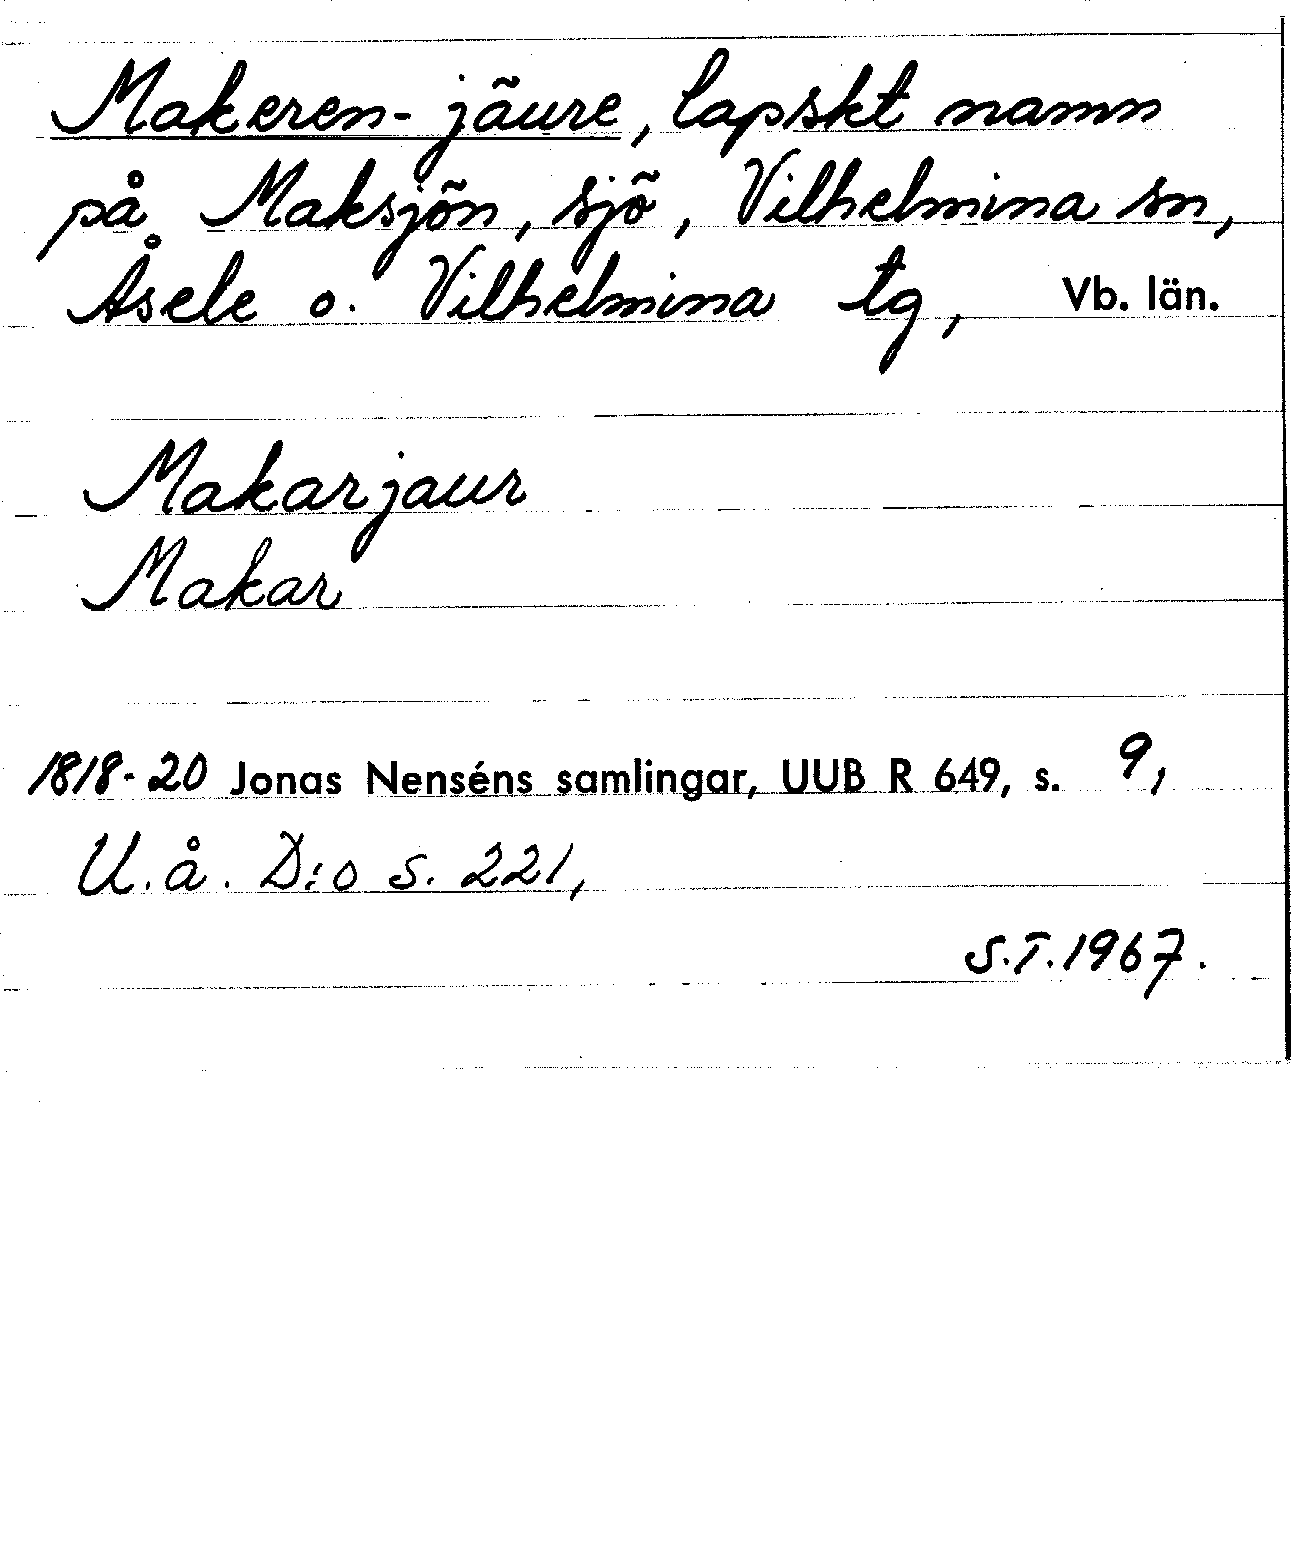 Makeren-jäure, lapskt namn
på Maksjön, sjö, Vilhelmina sn,
Åsele o. Vilhelmina tg, Vb. län.
Makarjaur
Makar
1818-20 Jonas Nenséns samlingar, UUB R 649, s. 9,
U.å. D:o s. 221,
S.T. 1967.